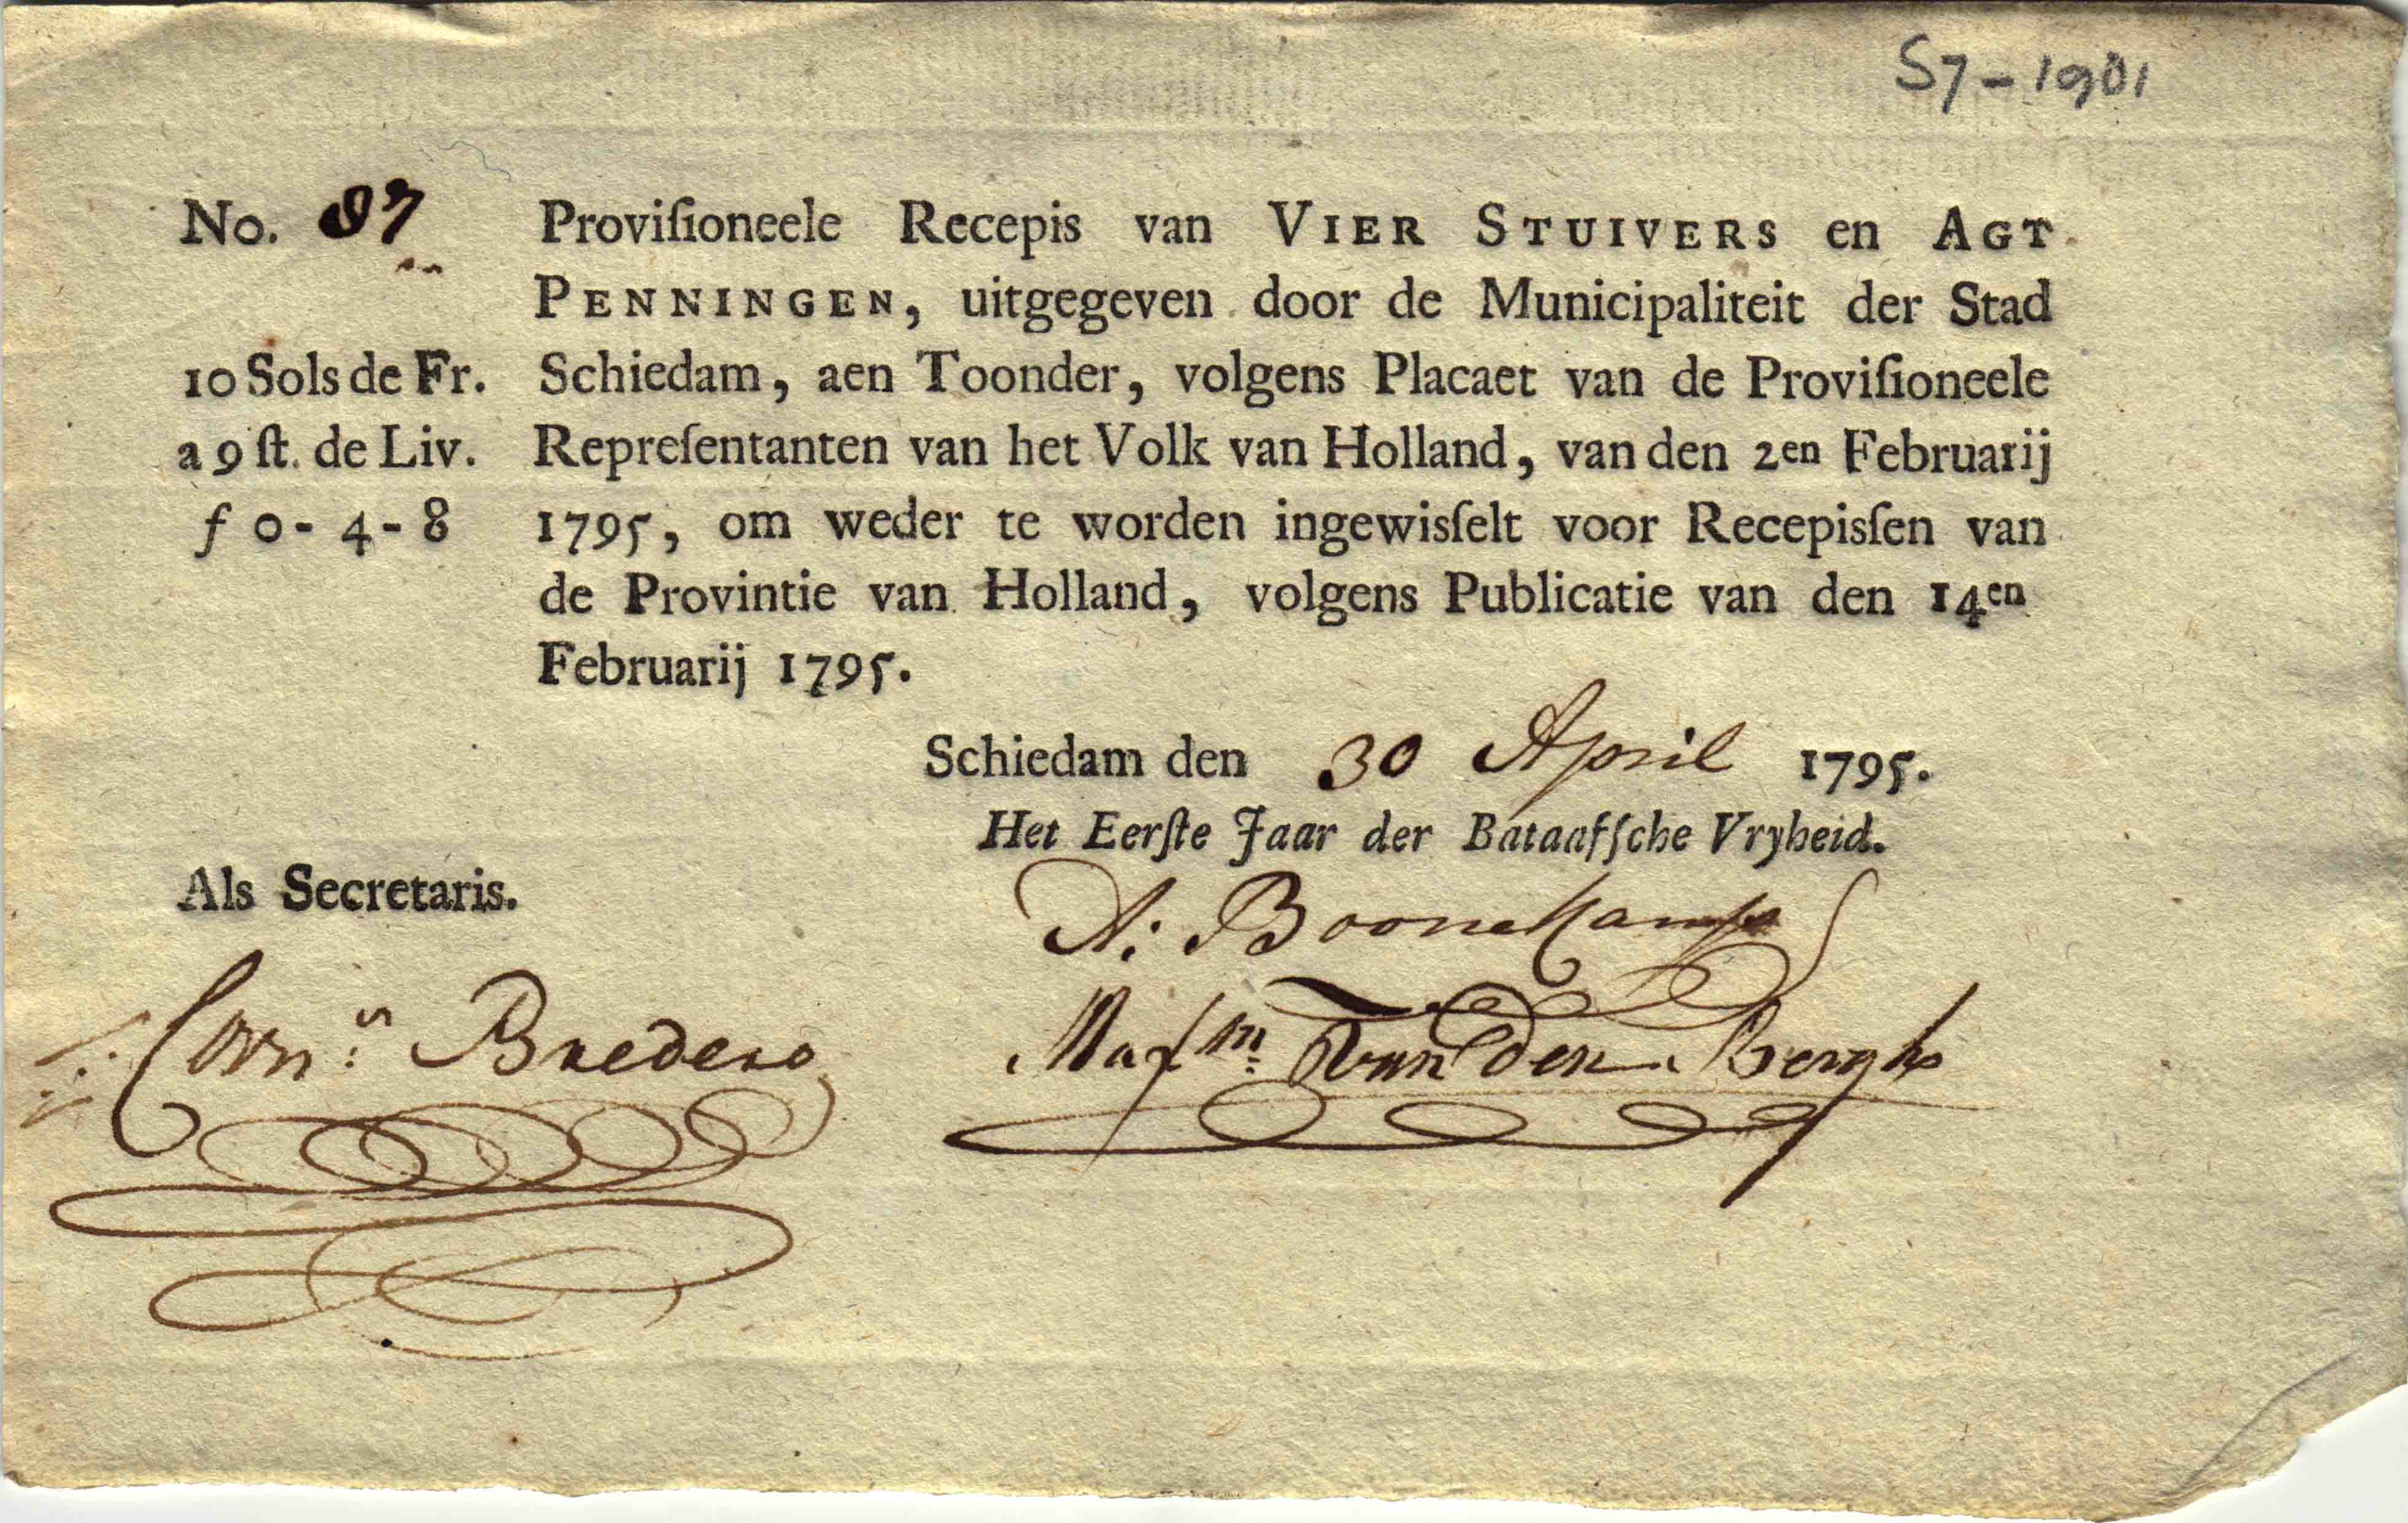 S7-1901
No. 87
Proviſioneele Recepis van VIER STUIVERS en AGT
PENNINGEN, uitgegeven door de Municipaliteit der Stad
10 Sols de Fr. Schiedam, aen Toonder, volgens Placaet van de Proviſioneele
a 9 ſt. de Liv. Repreſentanten van het Volk van Holland, van den 2en Februarij
f 0-4-8 1795, om weder te worden ingewisſelt voor Recepisſen van
de Provintie van Holland, volgens Publicatie van den 14en
Februarij 1795.
Schiedam den 30 April 1795.
Het Eerſte Jaar der Bataafſche Vryheid.
Als Secretaris.
A: Boonekamp
Corn:s Bredero
van den Bergh